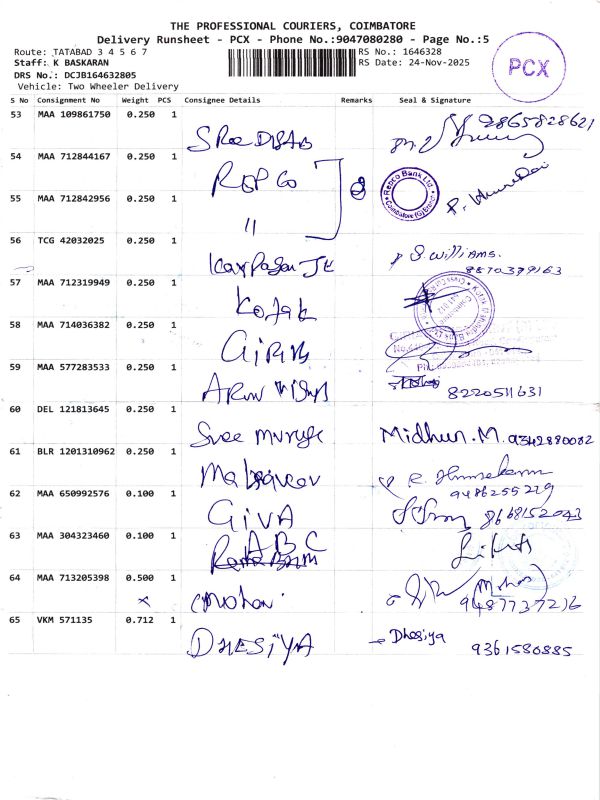 THE PROFESSIONAL COURIERS, COIMBATORE
Delivery Runsheet - PCX - Phone No.:9047080280 - Page No.:5
Route: TATABAD 3 4 5 6 7
RS No.: 1646328
Staff: K BASKARAN
RS Date: 24-Nov-2025
DRS No.: DCJB164632805
Vehicle: Two Wheeler Delivery
PCX
S No Consignment No Weight PCS Consignee Details Remarks Seal & Signature
53 MAA 109861750 0.250 1
54 MAA 712844167 0.250 1
REPCO
Repco Bank Ltd.
55 MAA 712842956 0.250 1
"
56 TCG 42032025 0.250 1
S. Williams.
57 MAA 712319949 0.250 1
Kotak
58 MAA 714036382 0.250 1
59 MAA 577283533 0.250 1
8220511631
60 DEL 121813645 0.250 1
Sree
Midhun.M. 9342890082
61 BLR 1201310962 0.250 1
9486255229
62 MAA 650992576 0.100 1
GIVA
8668152043
63 MAA 304323460 0.100 1
ABC
64 MAA 713205398 0.500 1
x
Mohan
9487737216
65 VKM 571135 0.712 1
DHESIYA
Dhesiya
9361580885